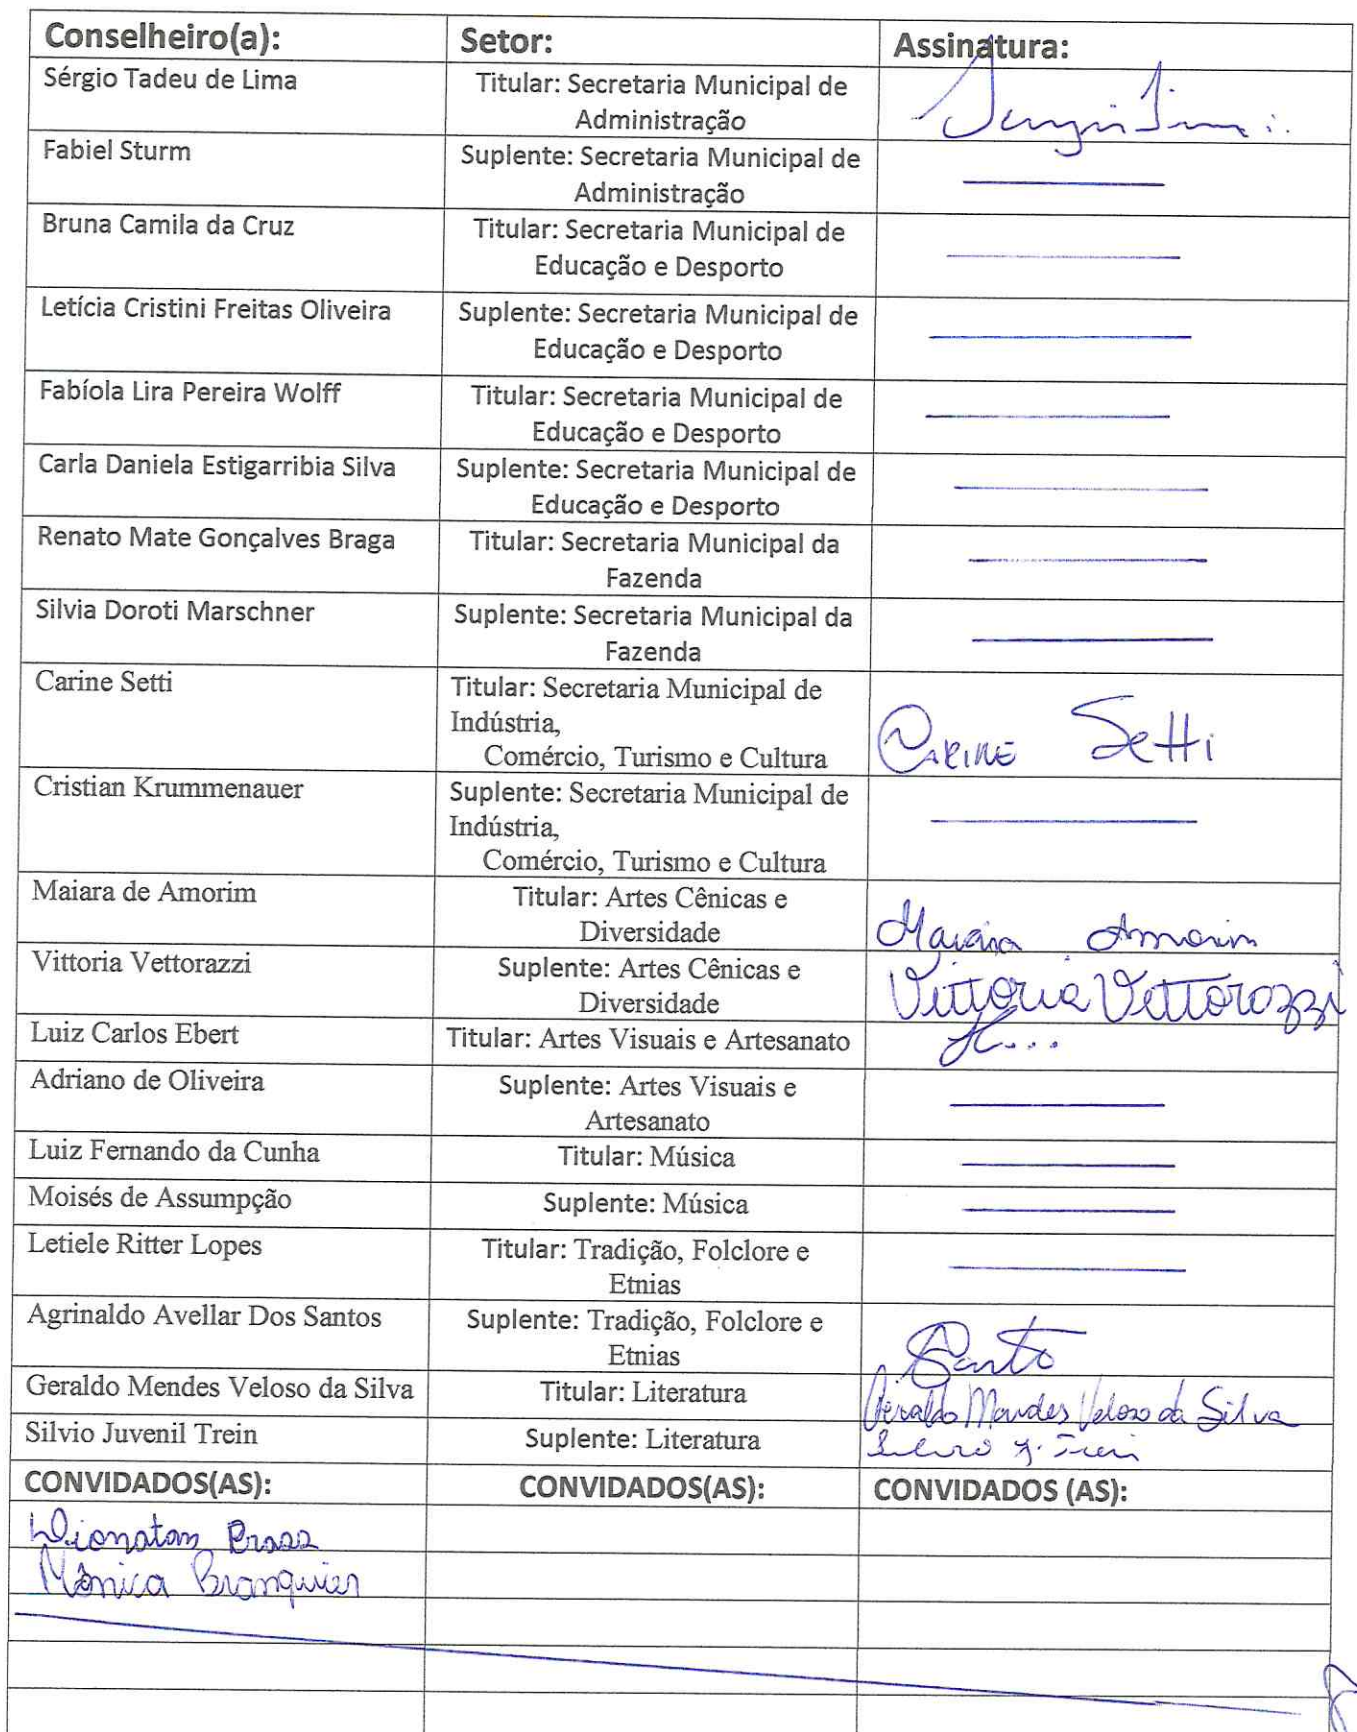 Conselheiro(a): Setor: Assinatura:
Sérgio Tadeu de Lima Titular: Secretaria Municipal de
Administração
Fabiel Sturm Suplente: Secretaria Municipal de
Administração
Bruna Camila da Cruz Titular: Secretaria Municipal de
Educação e Desporto
Letícia Cristini Freitas Oliveira Suplente: Secretaria Municipal de
Educação e Desporto
Fabíola Lira Pereira Wolff Titular: Secretaria Municipal de
Educação e Desporto
Carla Daniela Estigarribia Silva Suplente: Secretaria Municipal de
Educação e Desporto
Renato Mate Gonçalves Braga Titular: Secretaria Municipal da
Fazenda
Silvia Doroti Marschner Suplente: Secretaria Municipal da
Fazenda
Carine Setti Titular: Secretaria Municipal de
Indústria,
Comércio, Turismo e Cultura CARINE Setti
Cristian Krummenauer Suplente: Secretaria Municipal de
Indústria,
Comércio, Turismo e Cultura
Maiara de Amorim Titular: Artes Cênicas e
Diversidade Maiara Amorim
Vittoria Vettorazzi Suplente: Artes Cênicas e
Diversidade Vittoria Vettorazzi
Luiz Carlos Ebert Titular: Artes Visuais e Artesanato
Adriano de Oliveira Suplente: Artes Visuais e
Artesanato
Luiz Fernando da Cunha Titular: Música
Moisés de Assumpção Suplente: Música
Letiele Ritter Lopes Titular: Tradição, Folclore e
Etnias
Agrinaldo Avellar Dos Santos Suplente: Tradição, Folclore e
Etnias Santo
Geraldo Mendes Veloso da Silva Titular: Literatura Geraldo Mendes Veloso da Silva
Silvio Juvenil Trein Suplente: Literatura Silvio J. Trein
CONVIDADOS(AS): CONVIDADOS(AS): CONVIDADOS (AS):
Dionatan Prass
Mônica Branquier